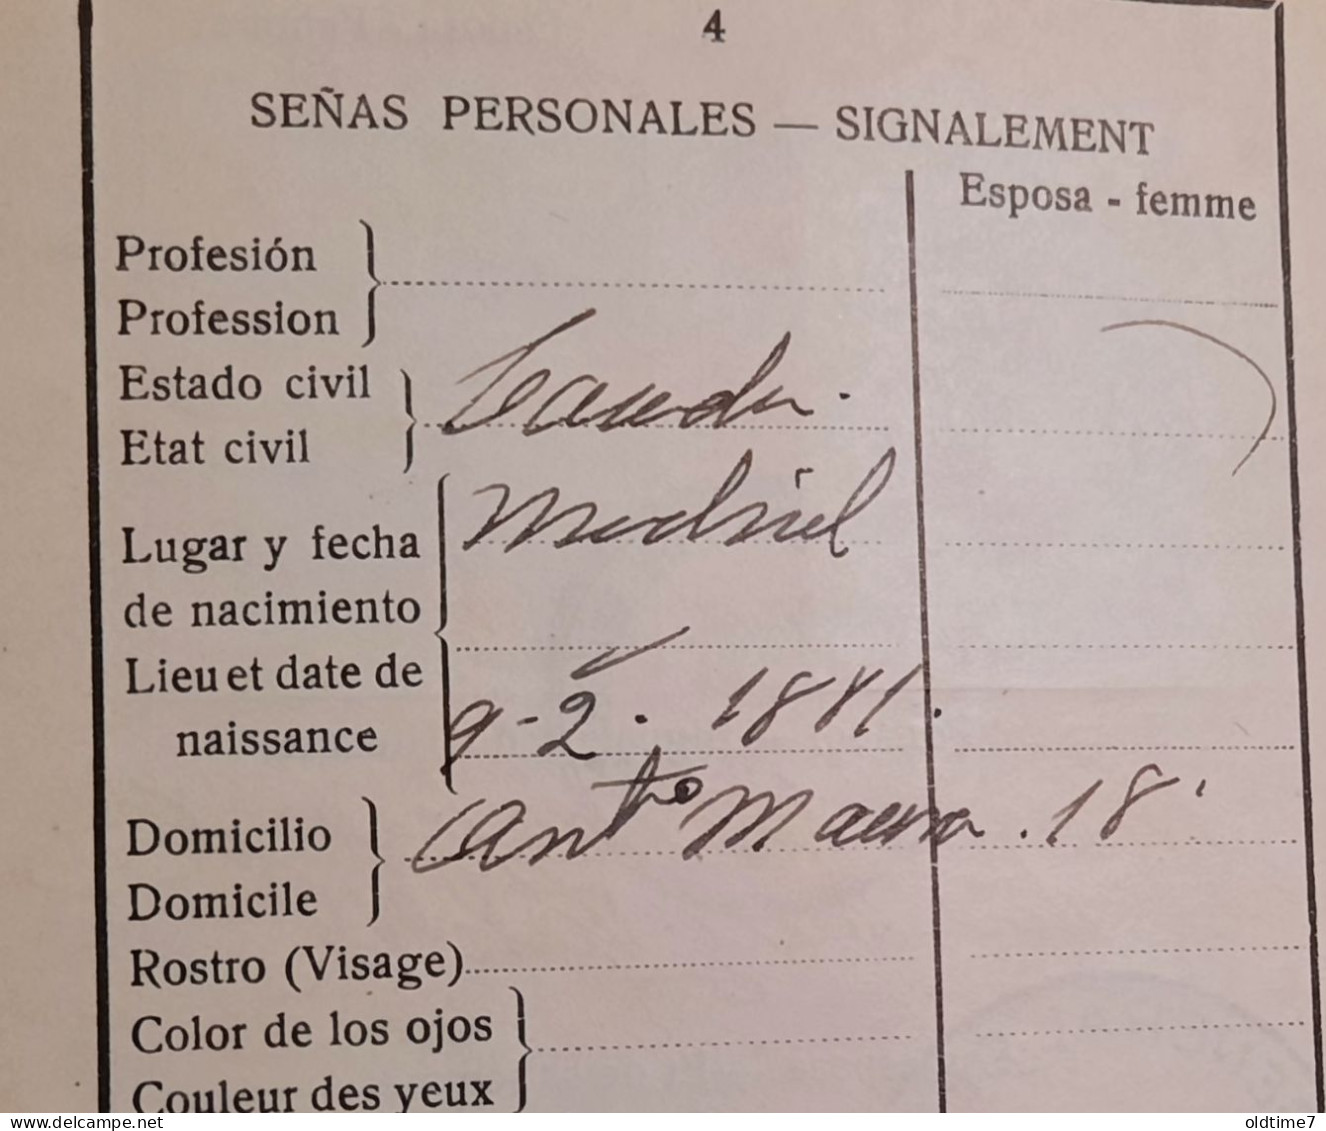 4
SEÑAS PERSONALES — SIGNALEMENT
Esposa - femme
Profesión
Profession
Estado civil
Etat civil
Lugar y fecha
Madrid
de nacimiento
Lieu et date de
naissance
9-2. 1881.
Domicilio
18
Domicile
Rostro (Visage)
Color de los ojos
Couleur des yeux
www.delcampe.net
oldtime7